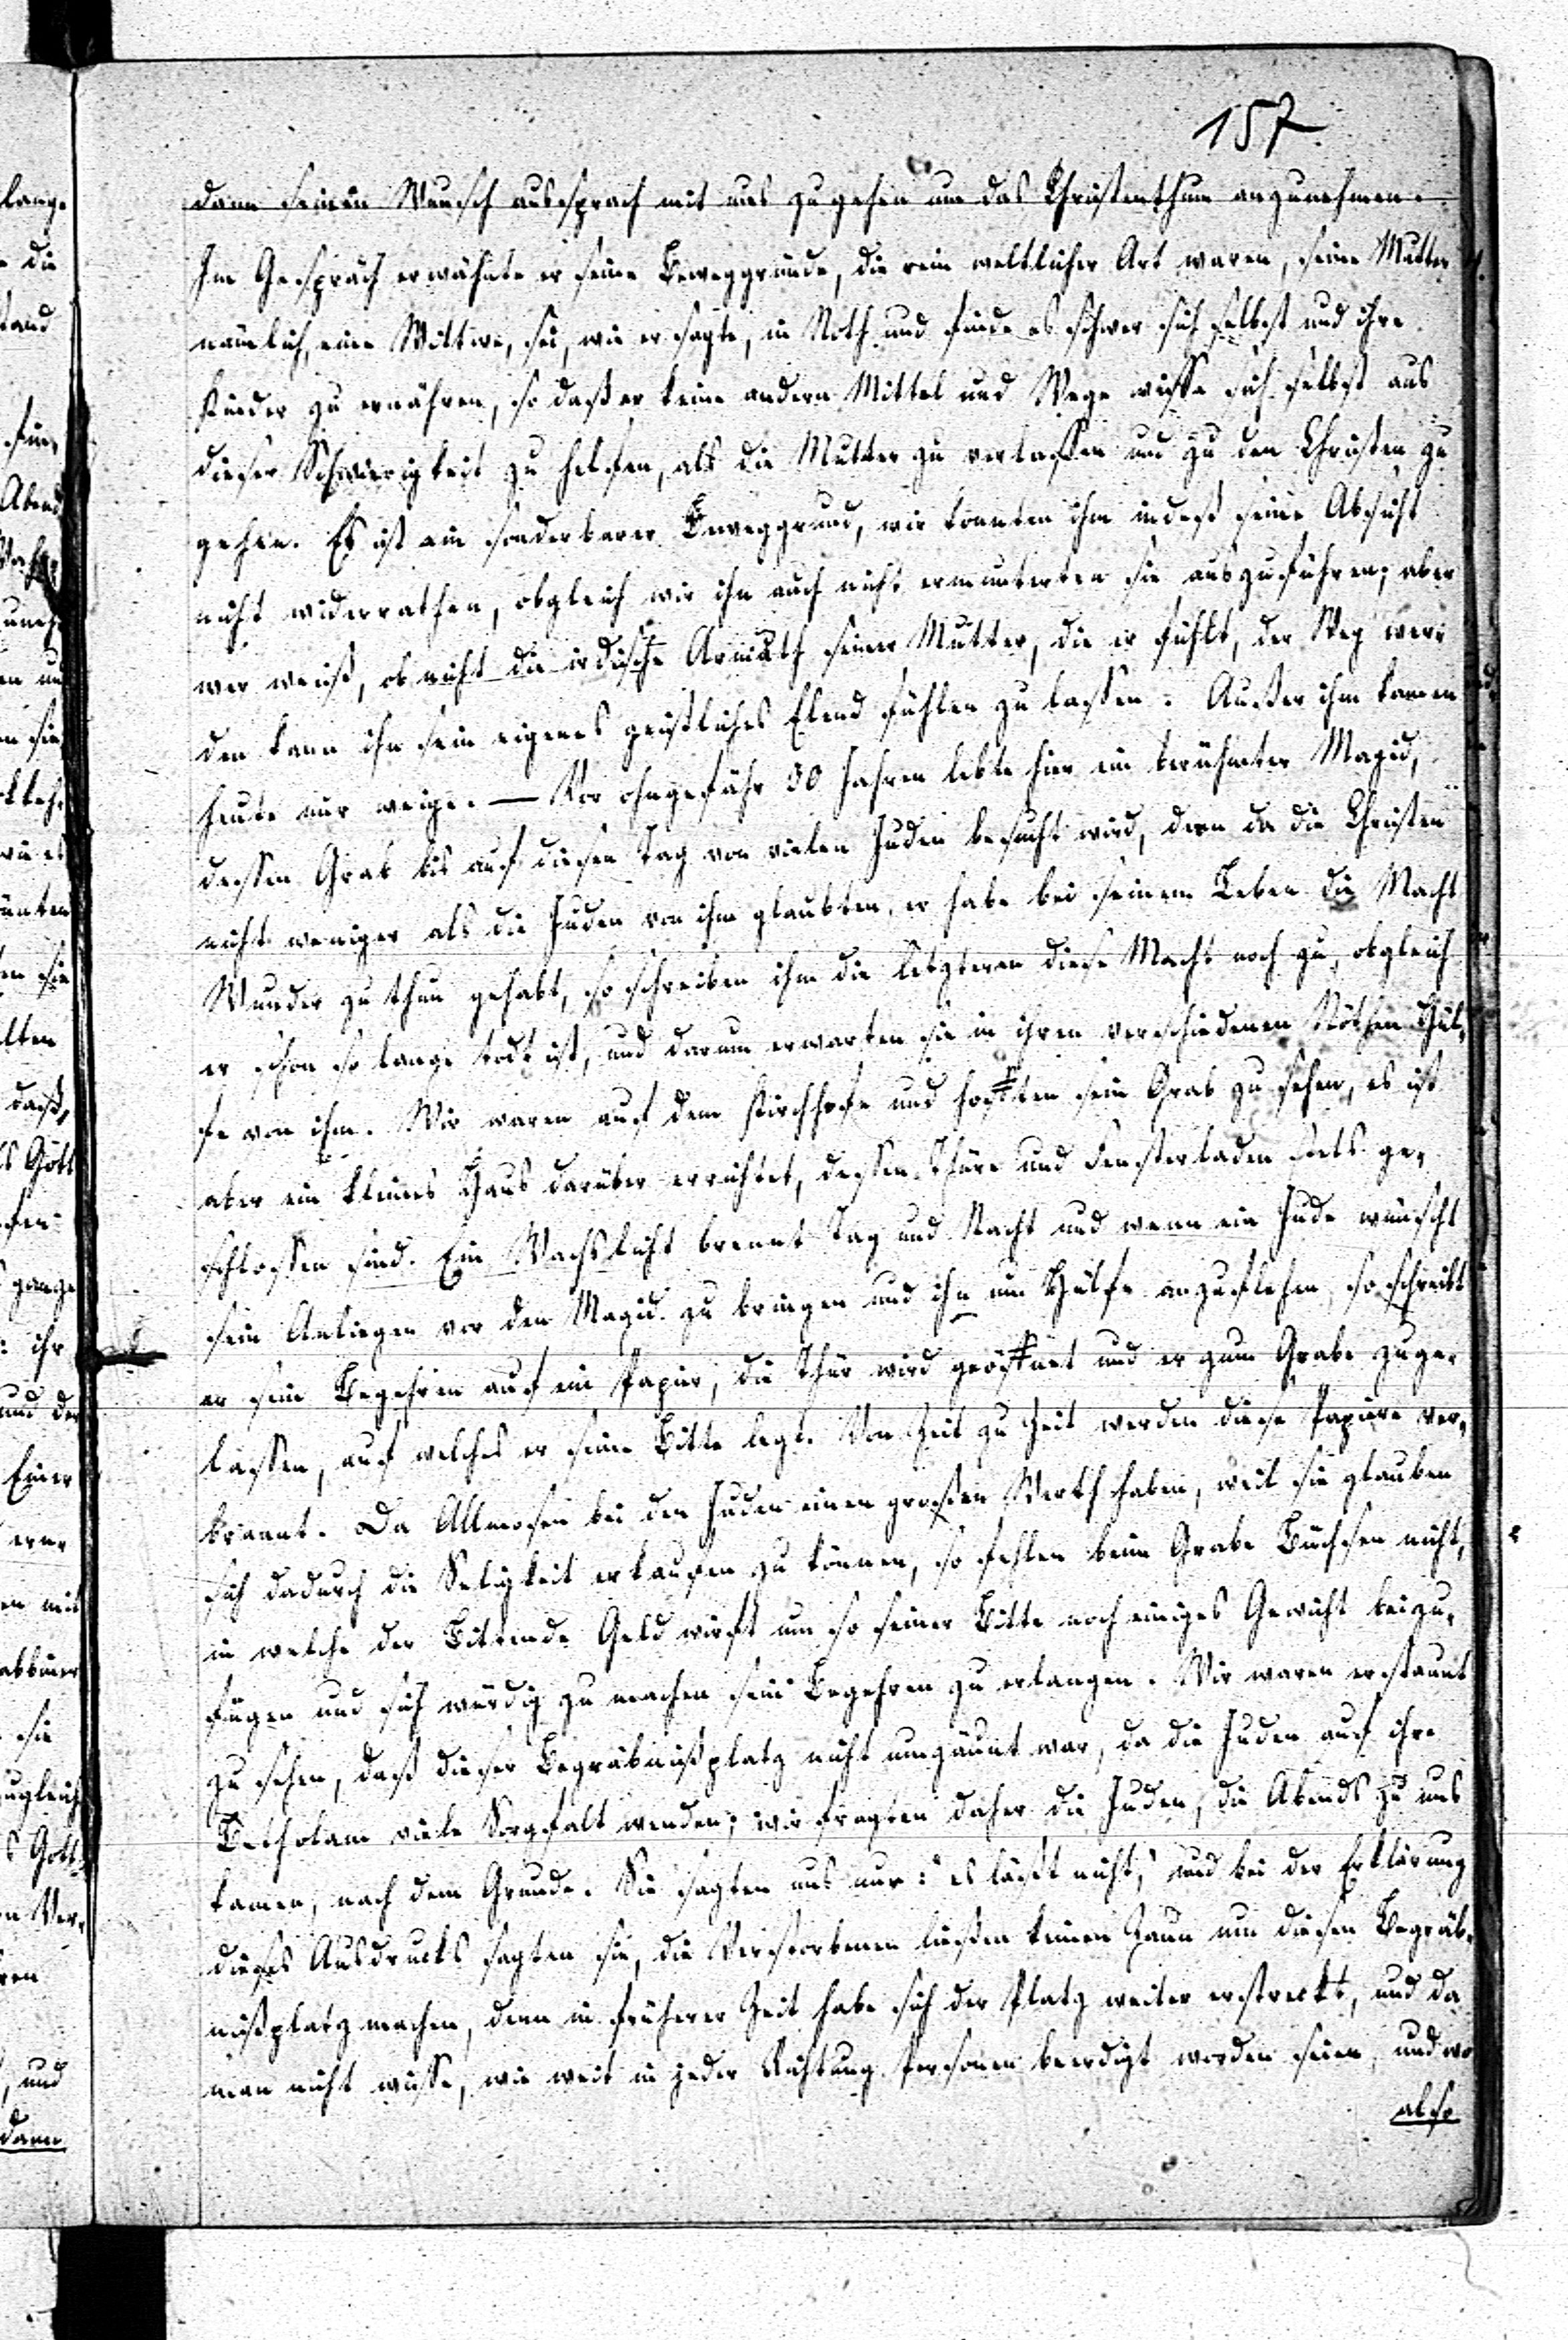 157
dann seinen Wunsch aussprach mit uns zu gehen um das Christenthum anzunehmen.
Im Gespräch erwähnte er seine Beweggründe, die rein weltlicher Art waren, seine Mutter
nämlich, eine Wittwe, sei, wie er sagte, in Noth und finde es schwer sich selbst und ihre
Kinder zu ernähren, so daß er keine andern Mittel und Wege wisse sich selbst aus
dieser Schwierigkeit zu helfen, als die Mutter zu verlassen und zu den Christen zu
gehen. Es ist ein sonderbarer Beweggrund, wir konnten ihm indeß seine Absicht
nicht widerrathen, obgleich wir ihn auch nicht ermunterten sie auszuführen; aber
wer weiß, ob nicht die irdische Armuth seiner Mutter, die er fühlt, der Weg wer-
den kann ihn sein eigenes geistliches Elend fühlen zu lassen. Außer ihm kamen
heute nur wenige. — Vor ohngefähr 30 Jahren lebte hier ein berühmter Magid,
dessen Grab bis auf diesen Tag von vielen Juden besucht wird, denn da die Christen
nicht weniger als die Juden von ihm glaubten, er habe bei seinem Leben die Macht
Wunder zu thun gehabt, so schreiben ihm die letzteren diese Macht noch zu, obgleich
er schon so lange todt ist, und darum erwarten sie in ihren verschiedenen Nöthen Hül-
fe von ihm. Wir waren auf dem Kirchhofe und hofften sein Grab zu sehen, es ist
aber ein kleines Haus darüber errichtet, dessen Thüre und Fensterladen stets ge-
schlossen sind. Ein Wachslicht brennt Tag und Nacht und wenn ein Jude wünscht
sein Anliegen vor den Magid zu bringen und ihn um Hülfe anzuflehen, so schreibt
er sein Begehren auf ein Papier, die Thür wird geöffnet und er zum Grabe zuge-
lassen, auf welches er seine Bitte legt. Von Zeit zu Zeit werden diese Papiere ver-
brannt. Da Allmosen bei den Juden einen großen Werth haben, weil sie glauben
sich dadurch die Seligkeit erkaufen zu können, so fehlen beim Grabe Büchsen nicht,
in welche der Bittende Geld wirft um so seiner Bitte noch einiges Gewicht beizu-
fügen und sich würdig zu machen sein Begehren zu erlangen. Wir waren erstaunt
zu sehen, daß dieser Begräbnißplatz nicht umzäunt war, da die Juden auf ihre
Betholam viele Sorgfalt wenden; wir fragten daher die Juden, die Abends zu uns
kamen, nach dem Grunde. Sie sagten uns nur: "es läßt nicht," und bei der Erklärung
dieses Ausdrucks sagten sie, die Verstorbenen ließen keinen Zaun um diesen Begräb-
nißplatz machen, denn in früherer Zeit habe sich der Platz weiter erstreckt, und da
man nicht wisse, wie weit in jeder Richtung Personen beerdigt worden seien, und wo
also